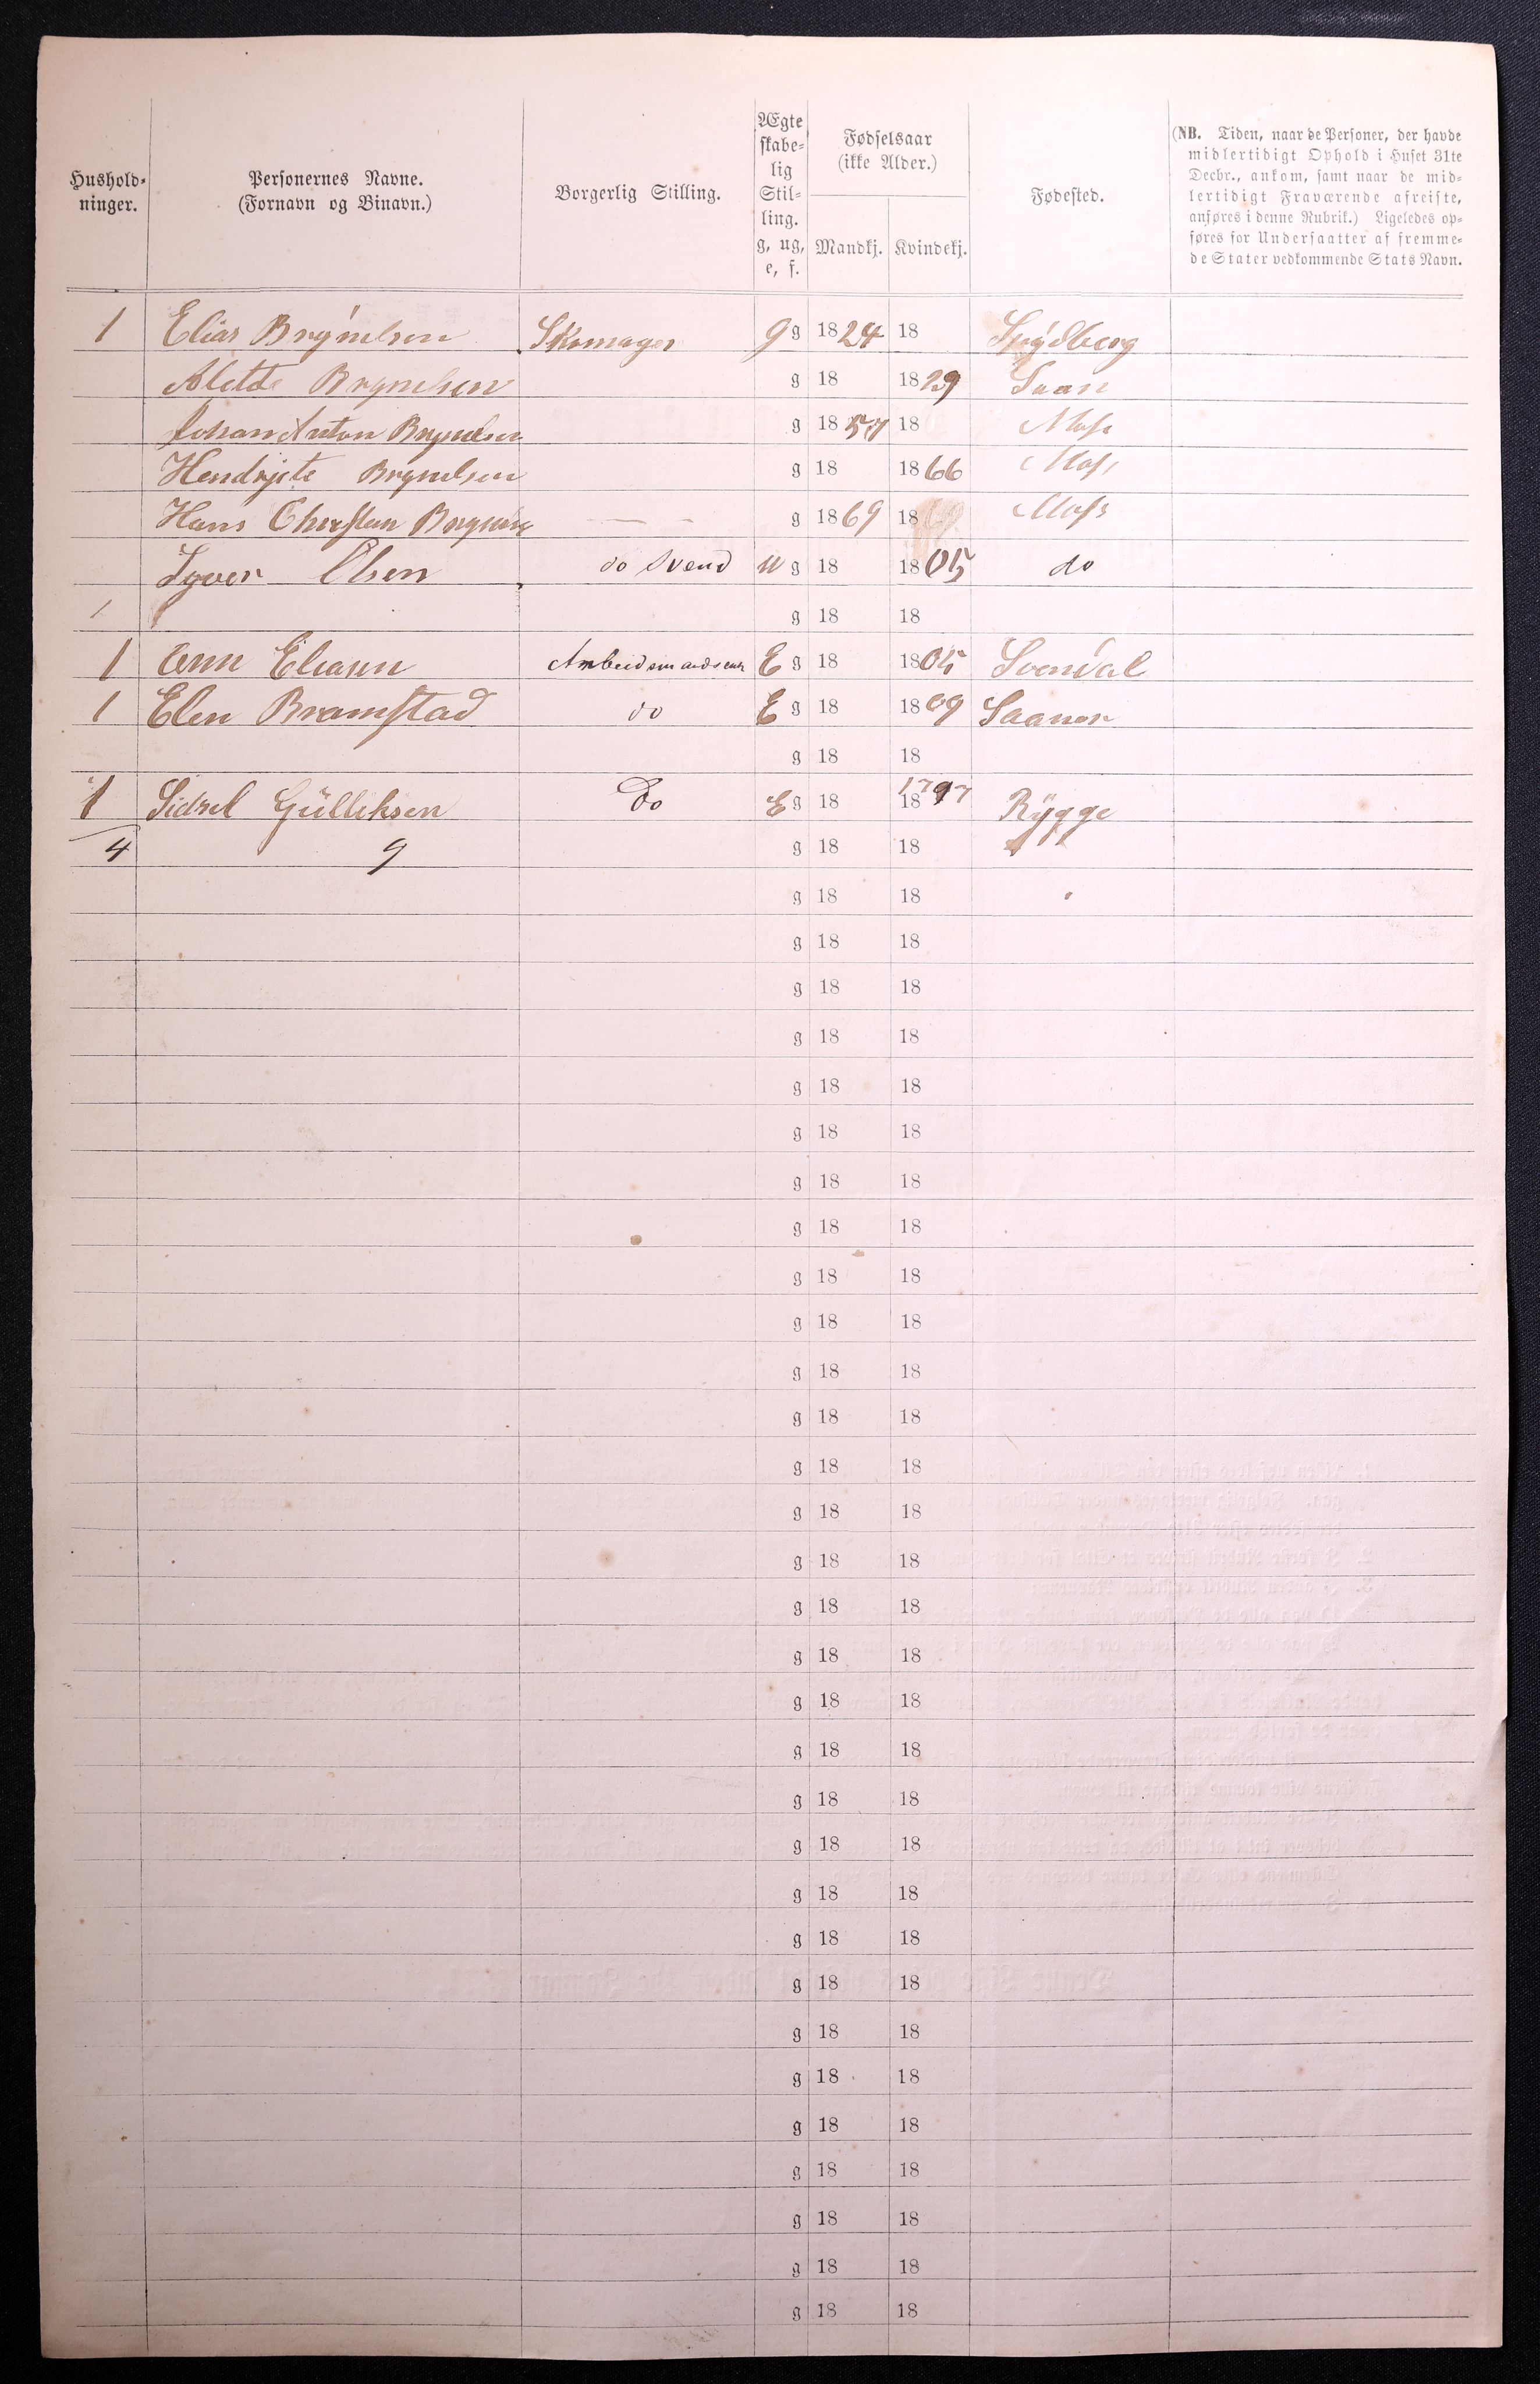 Hushold-
ninger.
Personernes Navne.
(Fornavn og Binavn.)
Borgerlig Stilling.
Ægte
skabe-
lig
Stil-
ling.
g, ug,
e, f.
Fødselsaar
(ikke Alder.)
Mandkj. Kvindekj.
Fødested.
(NB. Tiden, naar de Personer, der havde
midlertidigt Ophold i Huset 31te
Decbr., ankom, samt naar de mid-
lertidigt Fraværende afreiste,
anføres i denne Rubrik.) Ligeledes op-
føres for Undersaatter af fremme-
de Stater vedkommende Stats Navn.
1 Elias Brynelsen Skomager g g 1824 18 Spydberg
Alette Brynelsen g 18 1829 Saan
Johan Anton Brynelsen g 1857 18 Moss
Hendrjete Brynelsen g 18 1866 Moss
Hans Cherstan g 1869 18 Moss
Iver Olsen do Svend u g 18 1805 do
g 18 18
1 Ann Eliasen Arbeidsmands enk E g 18 1805 Svendal
1 Elen Bramstad do E g 18 1809 Saaner
g 18 18
1 Sidsel Gülliksen Do E g 18 1797 Rygge
4 9 g 18 18
g 18 18
g 18 18
g 18 18
g 18 18
g 18 18
g 18 18
g 18 18
g 18 18
g 18 18
g 18 18
g 18 18
g 18 18
g 18 18
g 18 18
g 18 18
g 18 18
g 18 18
g 18 18
g 18 18
g 18 18
g 18 18
g 18 18
g 18 18
g 18 18
g 18 18
g 18 18
g 18 18
g 18 18
g 18 18
g 18 18
g 18 18